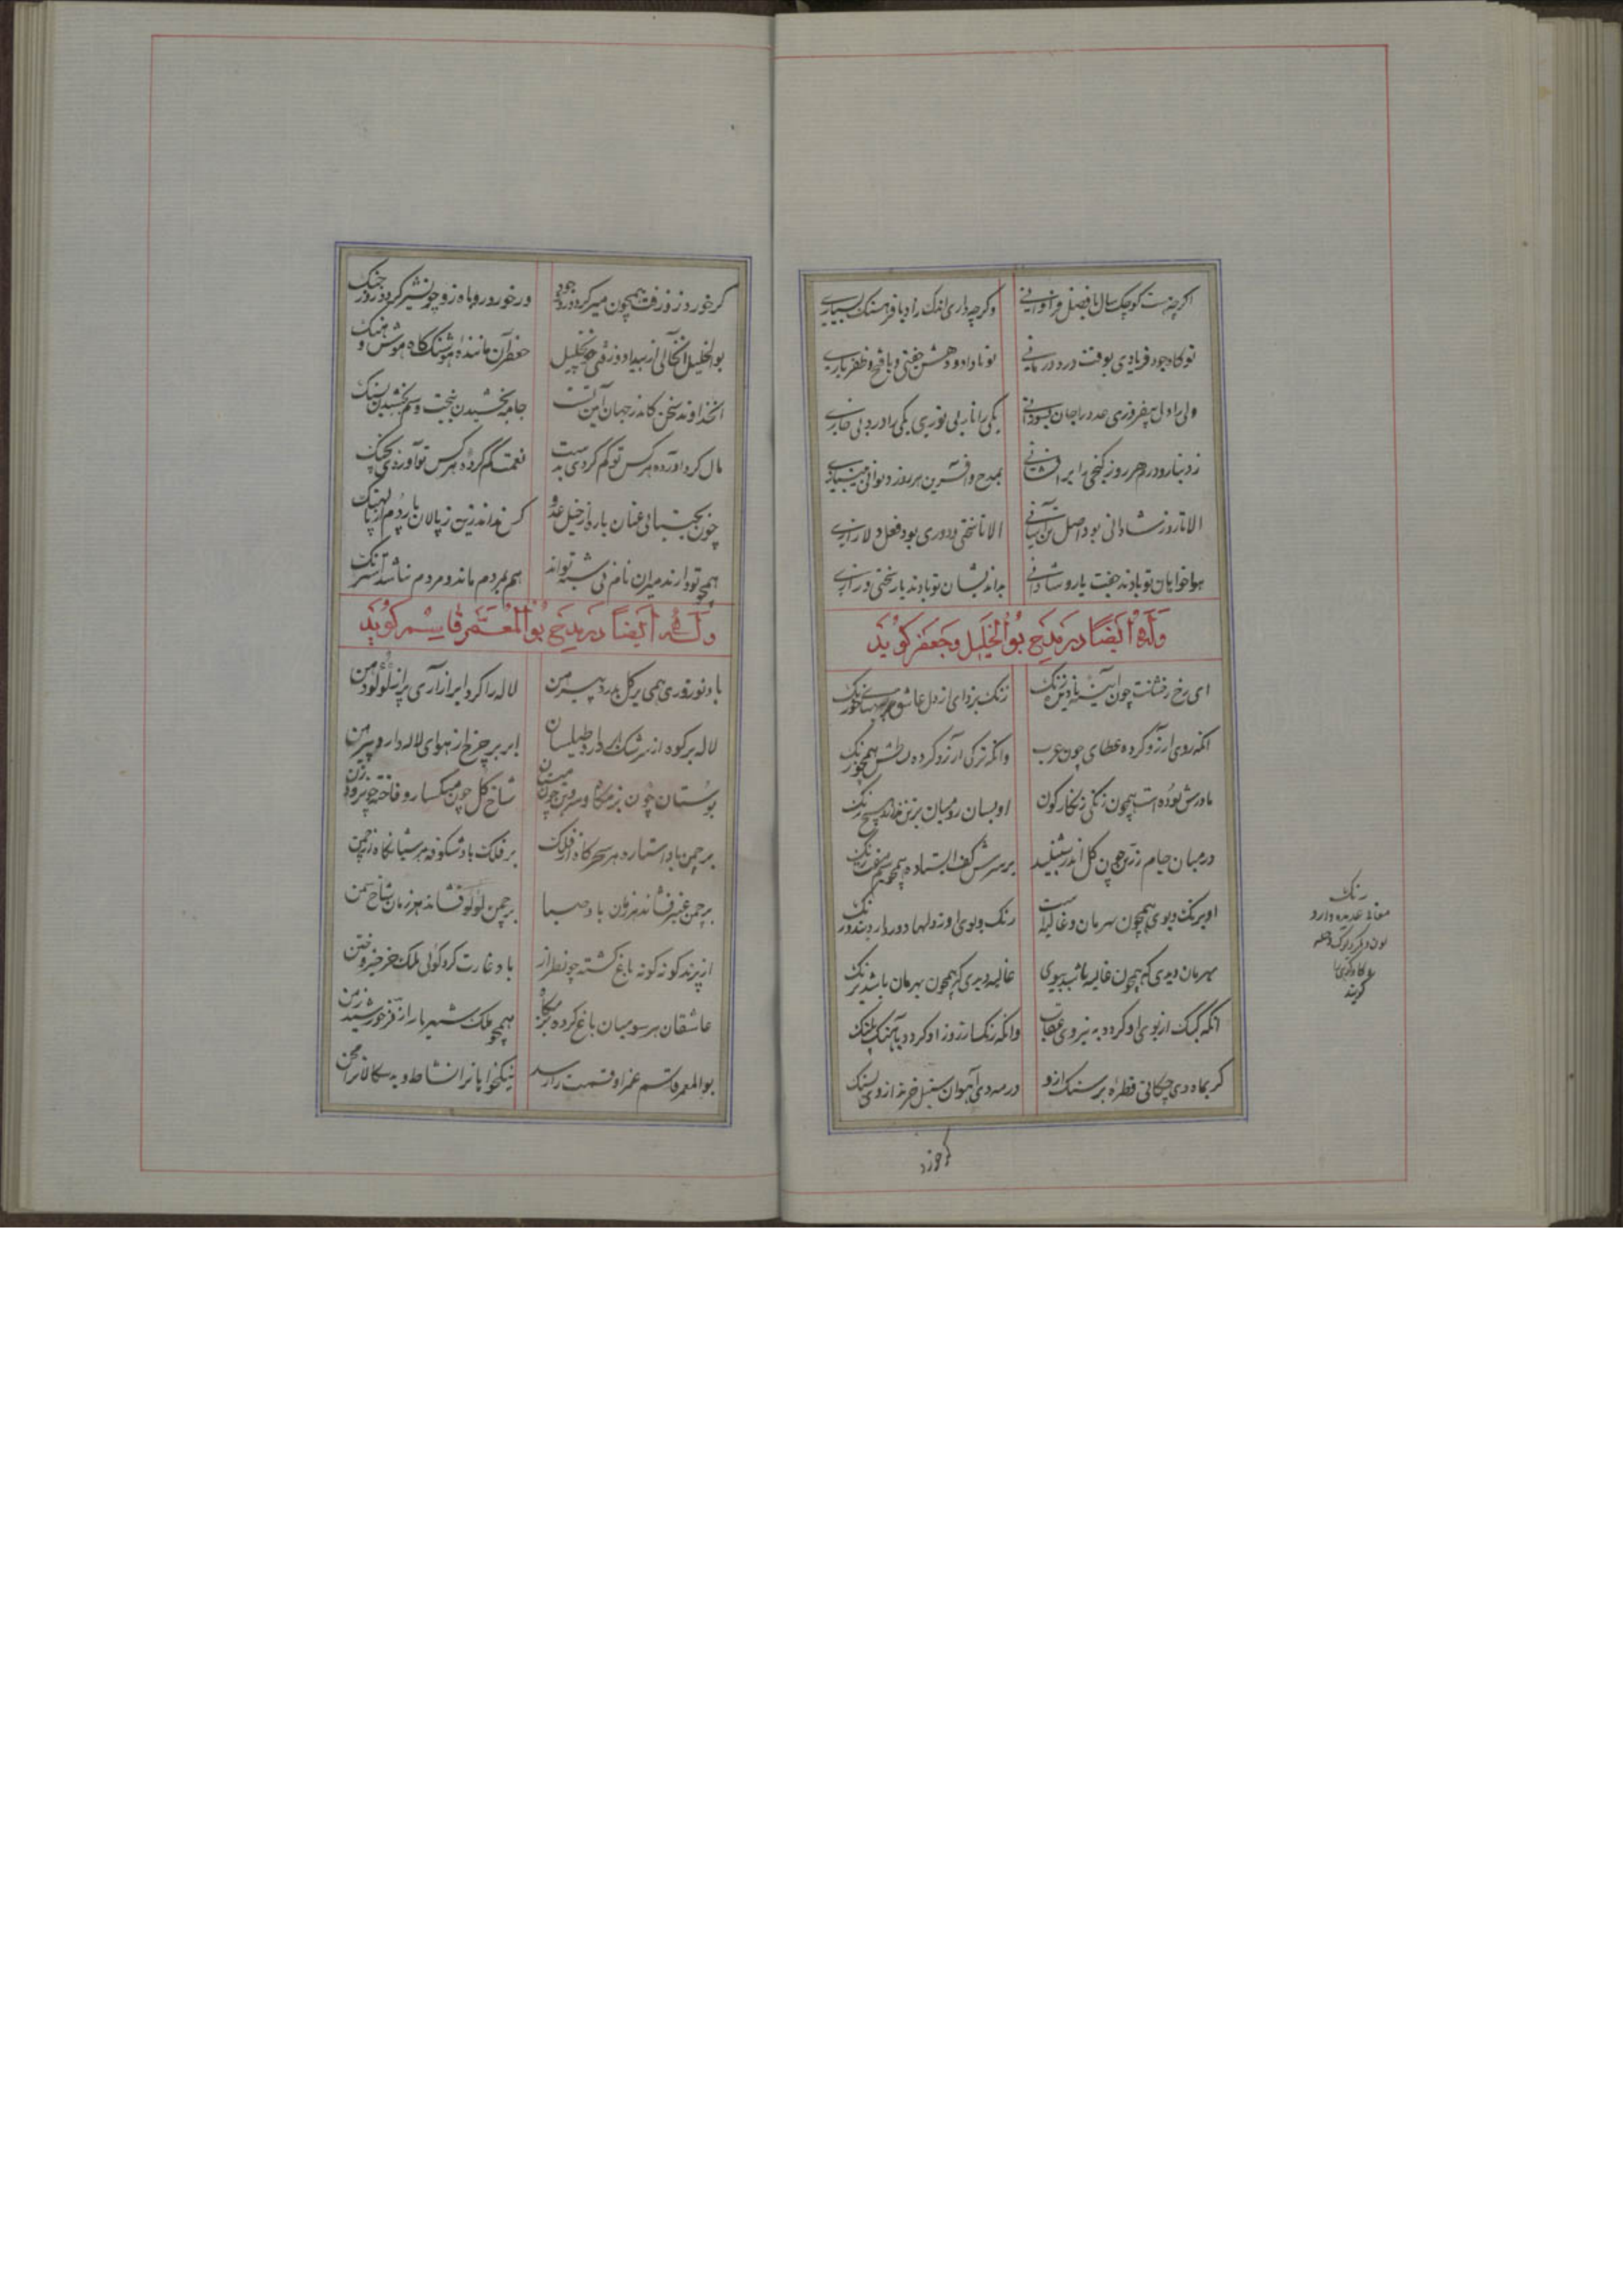 اگر چه هست کوچک سال با فضل فراوانی
وگر چه داری اندک زاد با فرهنگ بسیاری
تو گاه جود فریادی بوقت درد درمانی
تو با داد و دهش جفتی و با فتح و ظفر یاری
ولی را دل بیفروزی عدو را جان بسوزانی
یکی را نار بی نوری یکی را درد بی خاری
ز دینار و درم هر روز گنجی را برافشانی
بمدح و آفرین هر روز دیوانی بینباری
الا تا روز شادانی بود اصل تن آسانی
الا تا سختی و دوری بود فعل دلازاری
هواخواهان تو بادند جفت یار و شادانی
بداندیشان تو بادند یار سختی و زاری
وله ایضاً در مدح بوالخلیل وجعفر گوید
ای رخ رخشانت چون آیینه نادیده زنگ
زنگ بزدای از دل عاشق
انکه روی آرزو کرده عطای چون عرب
وانکه ترکی آرزو کرده بطش همچو زنگ
مادرش بوده است همچون زنگی زنگارگون
او بسان رومیان بر تن ندارد هیچ رنگ
در میان جام زرین چون گل اندر شنبلید
بر سرش کف ایستاده همچو سیم
او برنگ و بوی همچون بهرمان و غالیه است
رنگ و بوی او ز دلها دور دارد بند و رنگ
بهرمان دیدی که همچون غالیه باشد ببوی
غالیه دیدی که همچون بهرمان باشد برنگ
انکه کبک از بوی او گردد به نیروی عقاب
وانکه رنگ از زور او گردد بآهنگ پلنگ
گر بماه دی چکانی قطره بر سنگ ازو
در مه دی آهوان سنبل خرند از روی سنگ
رنگ
معانی عدیده دارد
لون و
و گاو کوهی را
گویند
گر خورد
گر خورد زو زفت همچون میر گردد روز جود
ور خورد روباه زو چون شیر گردد روز جنگ
بوالخلیل
جعفر آن مانند هوشنگ گاه هوش و هنگ
ان خداوند سخن کاندر جهان آیین تست
جامه بخشیدن بتخت و سیم بخشیدن بسنگ
مال گرد آورده هر کس تو گم کردی بدست
نعمت گم کرده هر کس تو آوردی بچنگ
چون بجنبانی عنان باره از خیل عدو
کس نداند زین ز پالان پاردم از پالهنگ
همچو تو دارند میران نام نی شبه تواند
هم بمردم ماند و مردم نباشد استرنگ
وله ایضاً در مدح بوالمعمر قاسم گوید
باد نوروزی همی بر گل بدرد پیرهن
لاله را کرد ابر ازاری پر از لؤلؤ دهن
لاله بر کوه از سرشک ابر دارد طیلسان
ابر بر چرخ از هوای لاله دارد پیرهن
بوستان چون بزمگاه و سرو بن چون میستان
شاخ گل چون میگسار و فاخته چو برودزن
بر چمن بارد ستاره هر سحرگاه از فلک
بر فلک بادشکوفه هر شبانگاه از چمن
بر چمن عنبر فشاند هر زمان باد صبا
بر چمن لولو فشاند هر زمان شاخ سمن
از پرند گونه گونه باغ گشته چون طراز
باد غارت کرد گوئی ملک خرخیز و ختن
عاشقان هر سو میان باغ کرده بزمگاه
همچو ملک شهریار از فر خورشید زمن
بوالمعمر قاسم عمر او قسمت را رسد
نیکخواهانرا نشاط و بدسگالانرا محن